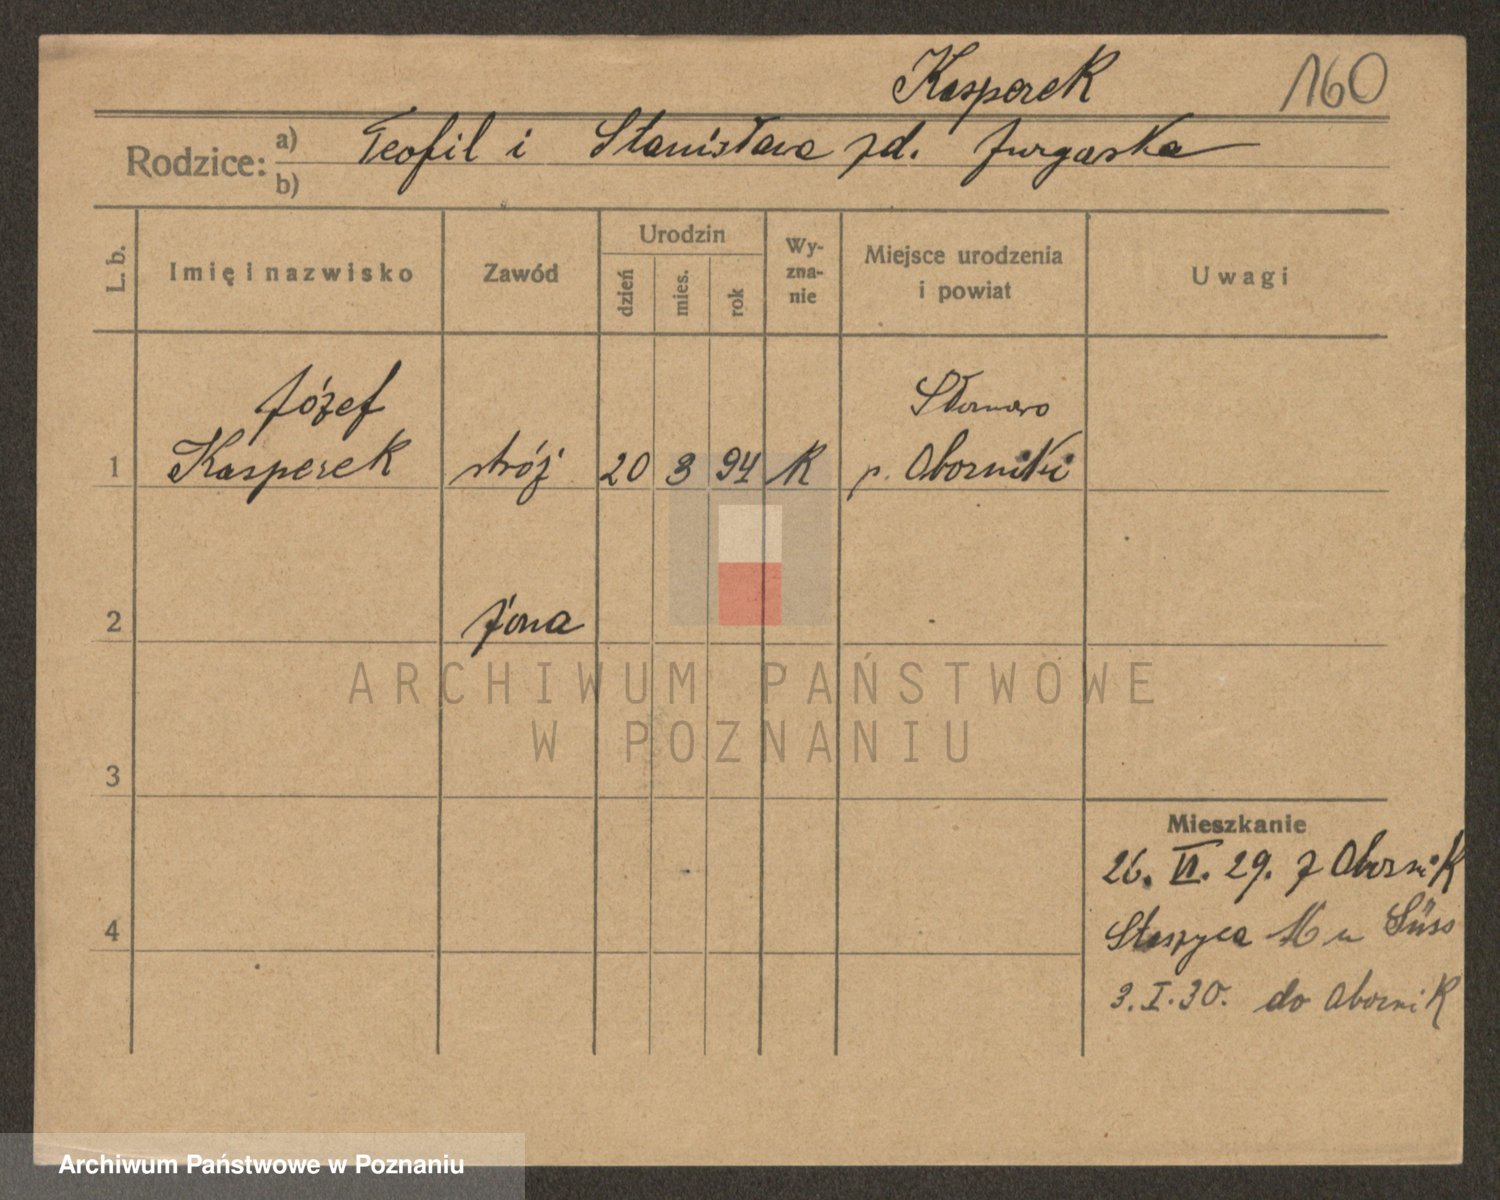 Kasperek 160
Rodzice: a) Teofil i Stanisława zd. Jurgaska
b)
L. b. Imię i nazwisko Zawód Urodzin dzień mies. rok Wy-zna-nie Miejsce urodzenia i powiat Uwagi
Józef Słomowo
1 Kasperek stróż 20 3 94 K p. Oborniki
2 żona
ARCHIWUM PAŃSTWOWE
W POZNANIU
3
Mieszkanie
26. VI. 29. z Obornik
4 Staszyca 16 u Süss
3. I. 30. do Obornik
Archiwum Państwowe w Poznaniu